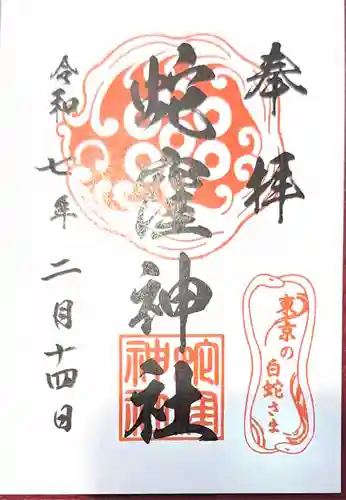 奉拝
蛇窪神社
令和七年二月十四日
東京の
白蛇さま
蛇窪
神社